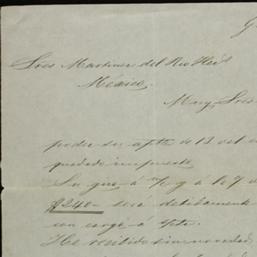 G
Sres Martinez del Rio Hos
México.
Muy Sres
poder su apte de 13 del
quedado impuesto
Su giro á
$240 – será debidamente
con cargo á
He recibido sin novedad,